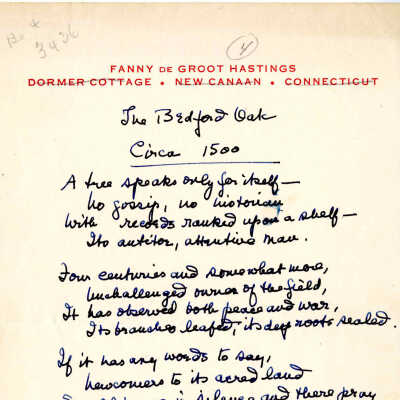 Box 4
3436
4
FANNY DE GROOT HASTINGS
DORMER COTTAGE • NEW CANAAN • CONNECTICUT
The Bedford Oak
Circa 1500
A tree speaks only for itself—
No gossip, no historian
With records ranked upon a shelf—
Its auditor, attentive man.
Four centuries and somewhat more,
Unchallenged owner of the field,
It has observed both peace and war,
Its branches leafed, its deep roots sealed.
If it has any words to say,
Newcomers to its acred land
in silence and there pray